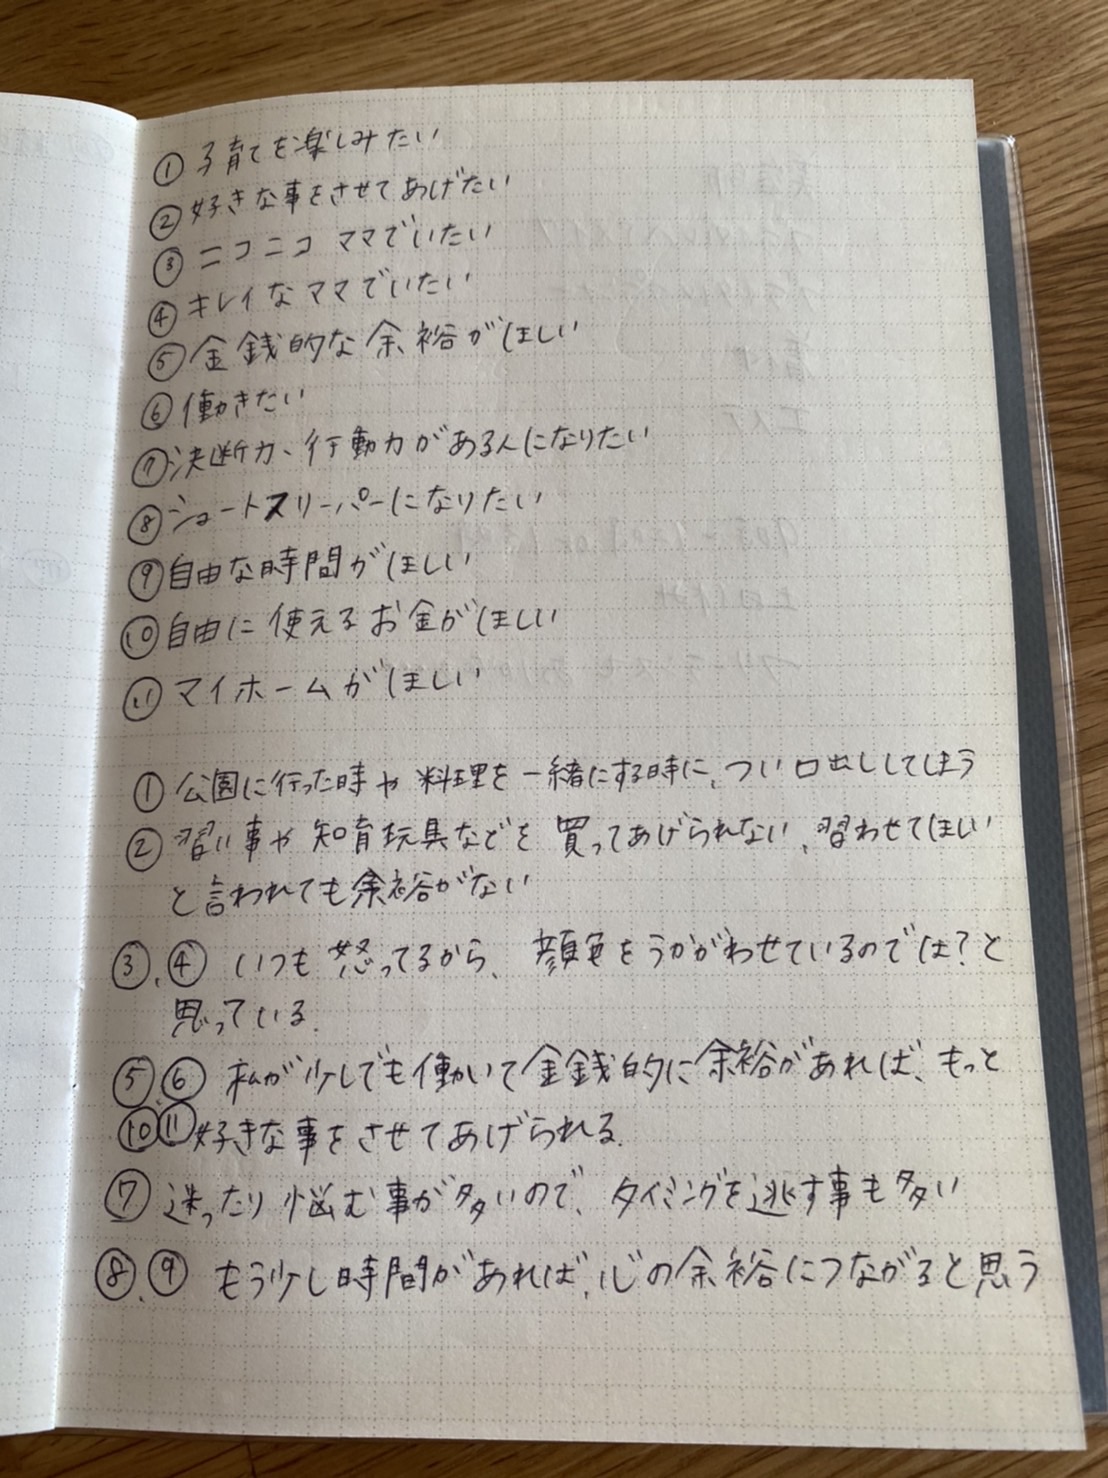 ① 子育てを楽しみたい
② 好きな事をさせてあげたい
③ ニコニコ ママでいたい
④ キレイなママでいたい
⑤ 金銭的な余裕がほしい
⑥ 働きたい
⑦ 決断力、行動力がある人になりたい
⑧ ショートスリーパーになりたい
⑨ 自由な時間がほしい
⑩ 自由に使えるお金がほしい
⑪ マイホームがほしい
① 公園に行った時や料理を一緒にする時に、つい口出ししてしまう
② 習い事や知育玩具などを買ってあげられない、習わせてほしい
と言われても余裕がない
③、④ いつも怒ってるから、顔色をうかがわせているのでは？と
思っている。
⑤、⑥ 私が少しでも働いて金銭的に余裕があれば、もっと
⑩ ⑪ 好きな事をさせてあげられる。
⑦ 迷ったり悩む事が多いので、タイミングを逃す事も多い
⑧、⑨ もう少し時間があれば、心の余裕につながると思う